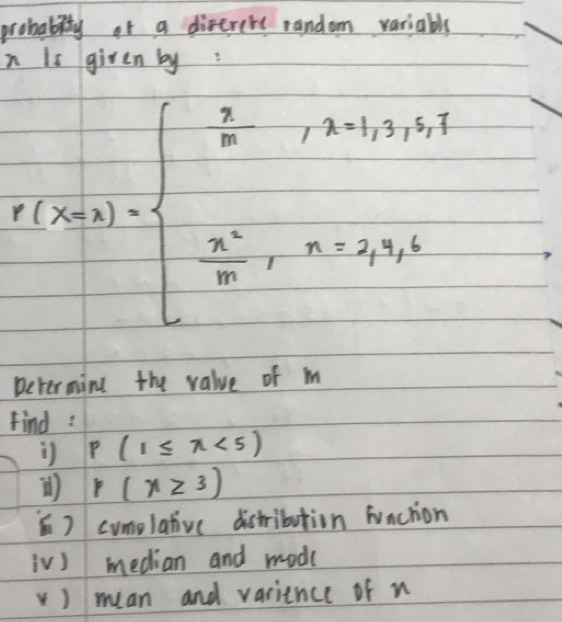 probability of a discrete random variable
x is given by :
x/m , x=1,3,5,7
P(X=x) =
x²/m , x = 2,4,6
Determine the value of m
Find :
i) P (1 ≤ x < 5)
ii) P (x ≥ 3)
iii) cumulative distribution function
iv) median and mode
v) mean and varience of x